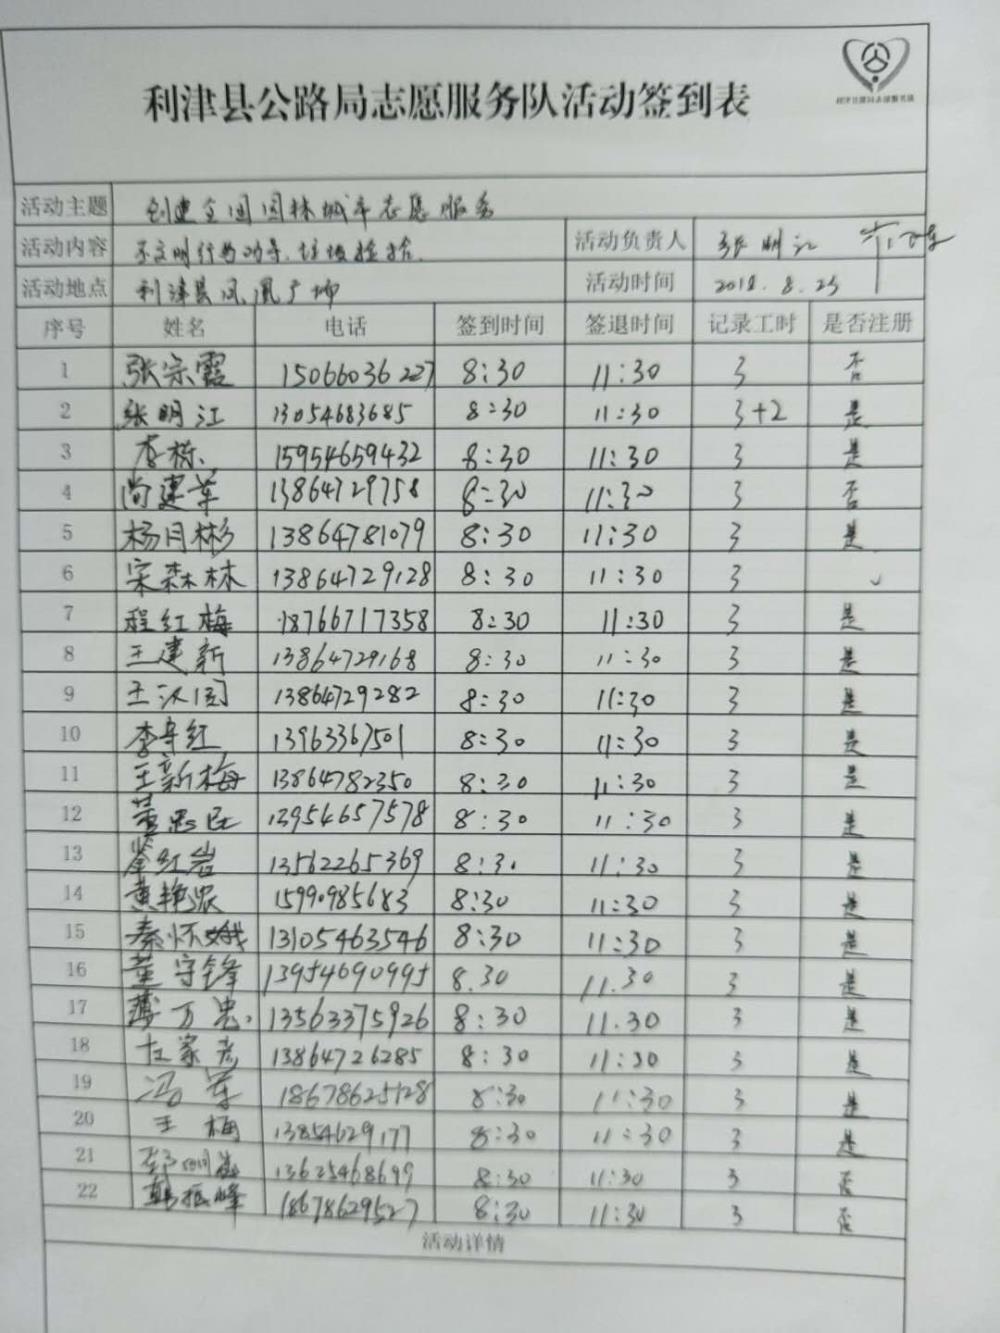 利津县公路局志愿服务队活动签到表
活动主题 创建全国园林城市志愿服务
活动内容 不文明行为劝导、垃圾捡拾. 活动负责人 张明江 李栋
活动地点 利津县凤凰广场 活动时间 2018.8.25
序号 姓名 电话 签到时间 签退时间 记录工时 是否注册
1 张宗霞 15066036227 8:30 11:30 3 否
2 张明江 13054683685 8:30 11:30 3+2 是
3 李栋 15954659432 8:30 11:30 3 是
4 尚建军 13864729758 8:30 11:30 3 否
5 杨月彬 13864781079 8:30 11:30 3 是
6 宋森林 13864729128 8:30 11:30 3
7 程红梅 18766717358 8:30 11:30 3 是
8 王建新 13864729168 8:30 11:30 3 是
9 王汉国 13864729282 8:30 11:30 3 是
10 李守红 13963367501 8:30 11:30 3 是
11 王新梅 13864782350 8:30 11:30 3 是
12 13954657578 8:30 11:30 3 是
13 红岩 13562265369 8:30 11:30 3 是
14 黄艳滨 15990985683 8:30 11:30 3 是
15 秦怀娥 13105463546 8:30 11:30 3 是
16 董守锋 13954690995 8.30 11.30 3 是
17 薄万忠 13563375926 8:30 11.30 3 是
18 左家彦 13864726285 8:30 11:30 3 是
19 冯军 18678625128 8:30 11:30 3 是
20 王梅 13854629177 8:30 11:30 3 是
21 13625468699 8:30 11:30 3 否
22 韩振峰 18678629527 8:30 11:30 3 否
活动详情